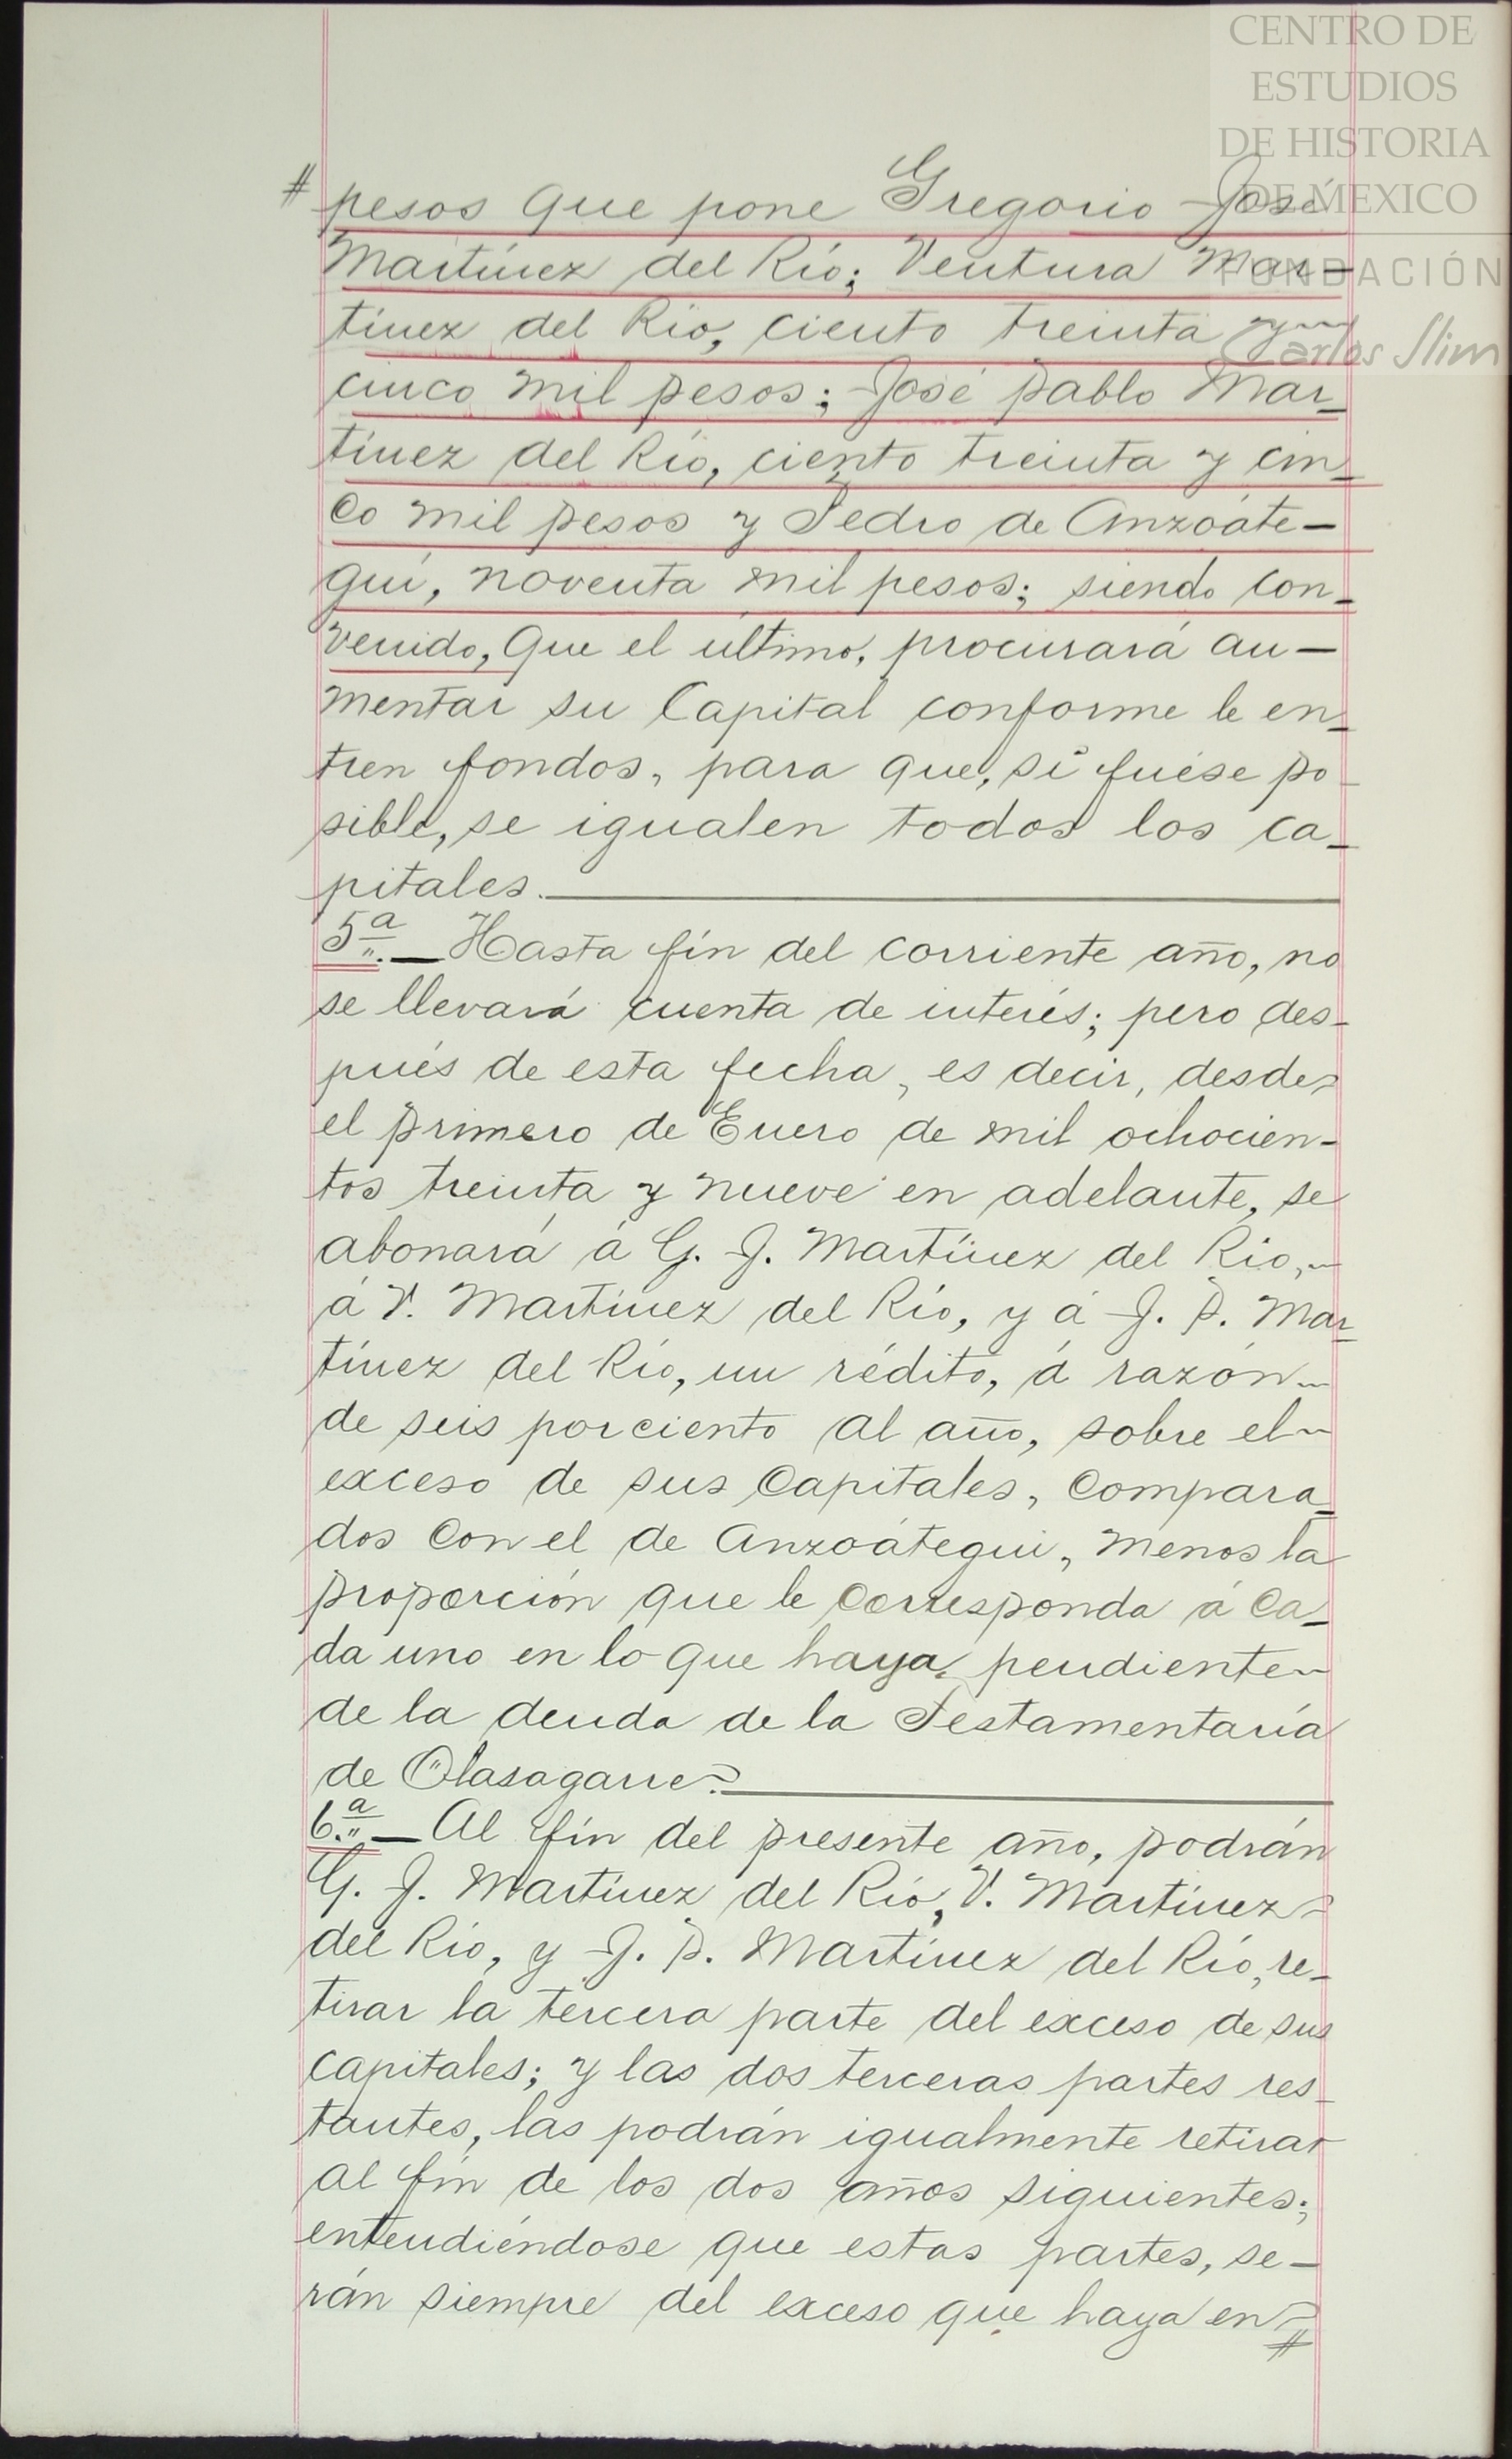 CENTRO DE
ESTUDIOS
DE HISTORIA
DE MÉXICO
FUNDACIÓN
Carlos Slim
# pesos que pone Gregorio José
Martínez del Río; Ventura Mar-
tínez del Río, ciento treinta y
cinco mil pesos; José Pablo Mar-
tínez del Río, ciento treinta y cin-
co mil pesos y Pedro de Anzoáte-
gui, noventa mil pesos; siendo con-
venido, que el último, procurará au-
mentar su Capital conforme le en-
tren fondos, para que, si fuése po-
sible, se igualen todos los ca-
pitales.
5ª.— Hasta fín del corriente año, no
se llevará cuenta de interés; pero des-
pués de esta fecha, es decir, desde
el primero de Enero de mil ochocien-
tos treinta y nueve en adelante, se
abonará á G. J. Martínez del Río,
á V. Martínez del Río, y á J. P. Mar-
tínez del Río, un rédito, á razón
de seis porciento al año, sobre el
exceso de sus Capitales, compara-
dos con el de Anzoátegui, menos la
proporción que le corresponda á ca-
da uno en lo que haya pendiente
de la deuda de la Testamentaría
de Olasagarre.
6ª.— Al fín del presente año, podrán
G. J. Martínez del Río, V. Martínez
del Río, y J. P. Martínez del Río, re-
tirar la tercera parte del exceso de sus
capitales; y las dos terceras partes res-
tantes, las podrán igualmente retirar
al fín de los dos años siguientes;
entendiéndose que estas partes, se-
rán siempre del exceso que haya en #